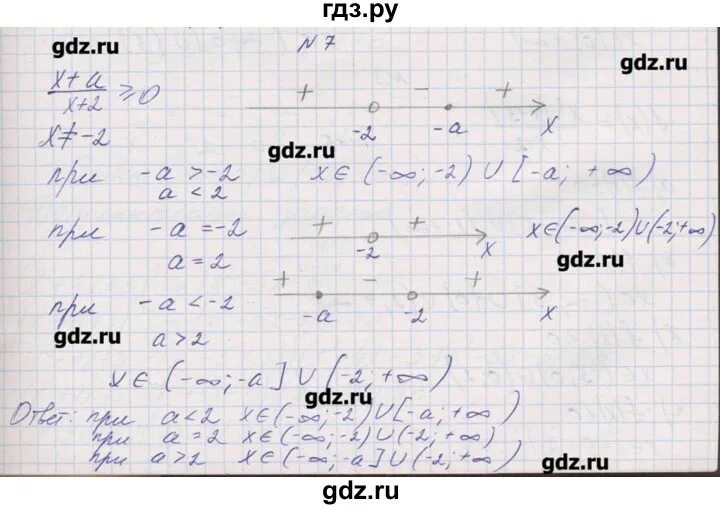 гдз.ру
gdz.ru
N 7
gdz.ru
(x+a)/(x+2) ≥ 0
+ - +
-2 -a x
x ≠ -2
gdz.ru
при -a > -2 x∈(-∞;-2)∪[-a; +∞)
a < 2
при -a = -2 + + x∈(-∞;-2)∪(-2;+∞)
-2 x
a = 2
gdz.ru
+ - +
при -a < -2 -a -2 x
gdz.ru
a > 2
x∈(-∞;-a]∪(-2;+∞)
gdz.ru
Ответ: при a<2 x∈(-∞;-2)∪[-a;+∞)
при a=2 x∈(-∞;-2)∪(-2;+∞)
при a>2 x∈(-∞;-a]∪(-2;+∞)
gdz.ru
gdz.ru